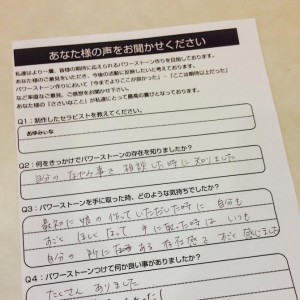 あなた様の声をお聞かせください
私達はより一層、皆様の期待に応えられるパワーストーン作りを目指しております。
あなた様のご意見をいただき、今後の活動に反映したいと考えております。
パワーストーン作りにおいて「今までよりここが良かった」・「ここは期待以上だった」
など率直なご意見、ご感想をお聞かせ下さい。
あなた様の「ささいなこと」が私達にとって最高の響びとなっております。
Q1：制作したセラピストを教えてください。
あゆみぃな
Q2：何をきっかけでパワーストーンの存在を知りましたか？
自分のなやみ事で相談した時に知りました
Q3：パワーストーンを手に取った時、どのような気持ちでしたか？
最初に娘の作っていただいた時に自分も
すごくほしくなって手に取った時はいつも
自分の所にある存在感をすごく感じました
Q4：パワーストーンつけて何か良い事がありましたか？
たくさんありました